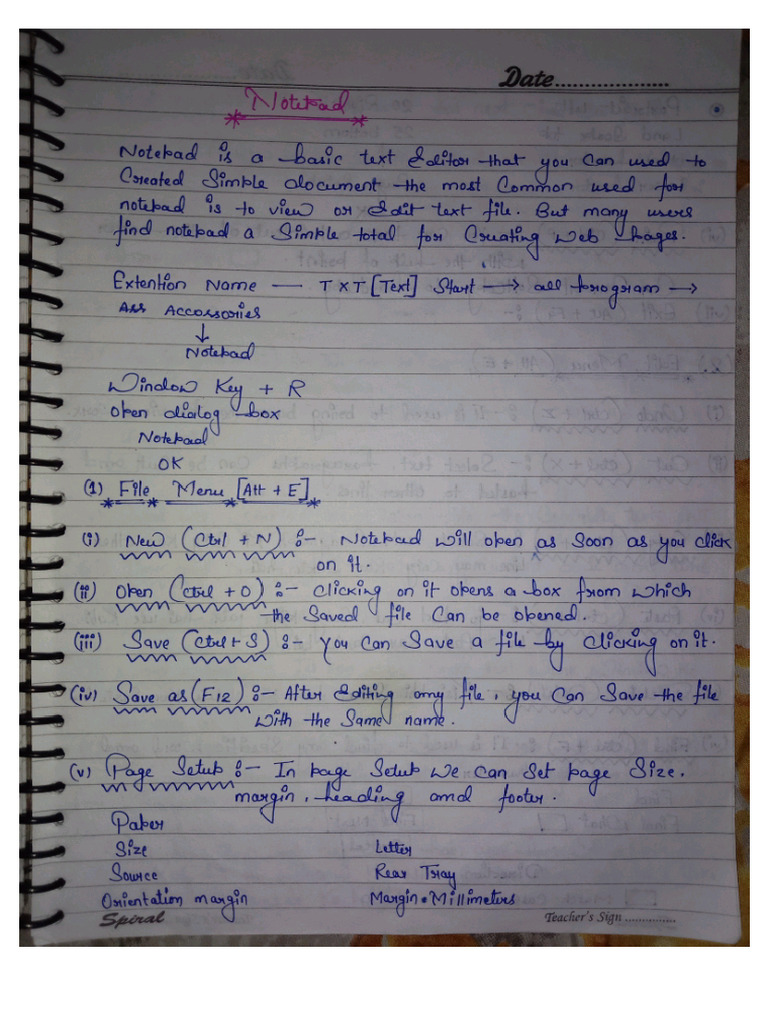 Date....................
Notepad
Notepad is a basic text Editor that you can used to
Created Simple document the most Common used for
notepad is to view or Edit text file. But many users
find notepad a Simple total for Creating web pages.
Extention Name — TXT [Text] Start → all program →
Accossories
↓
Notepad
Window Key + R
open dialog box
Notepad
OK
(1) File Menu [Alt + E]
(i) New (Ctrl + N) :- Notepad will open as soon as you click
on it.
(ii) Open (Ctrl + O) :- Clicking on it opens a box from which
the Saved file Can be opened.
(iii) Save (Ctrl + S) :- You Can Save a file by Clicking on it.
(iv) Save as (F12) :- After Editing any file, you Can Save the file
with the Same name.
(v) Page Setup :- In page Setup we Can Set page Size.
margin, heading and footer.
Paper
Size Letter
Source Rear Tray
Orientation margin Margin • Millimeters
Spiral Teacher's Sign ...............